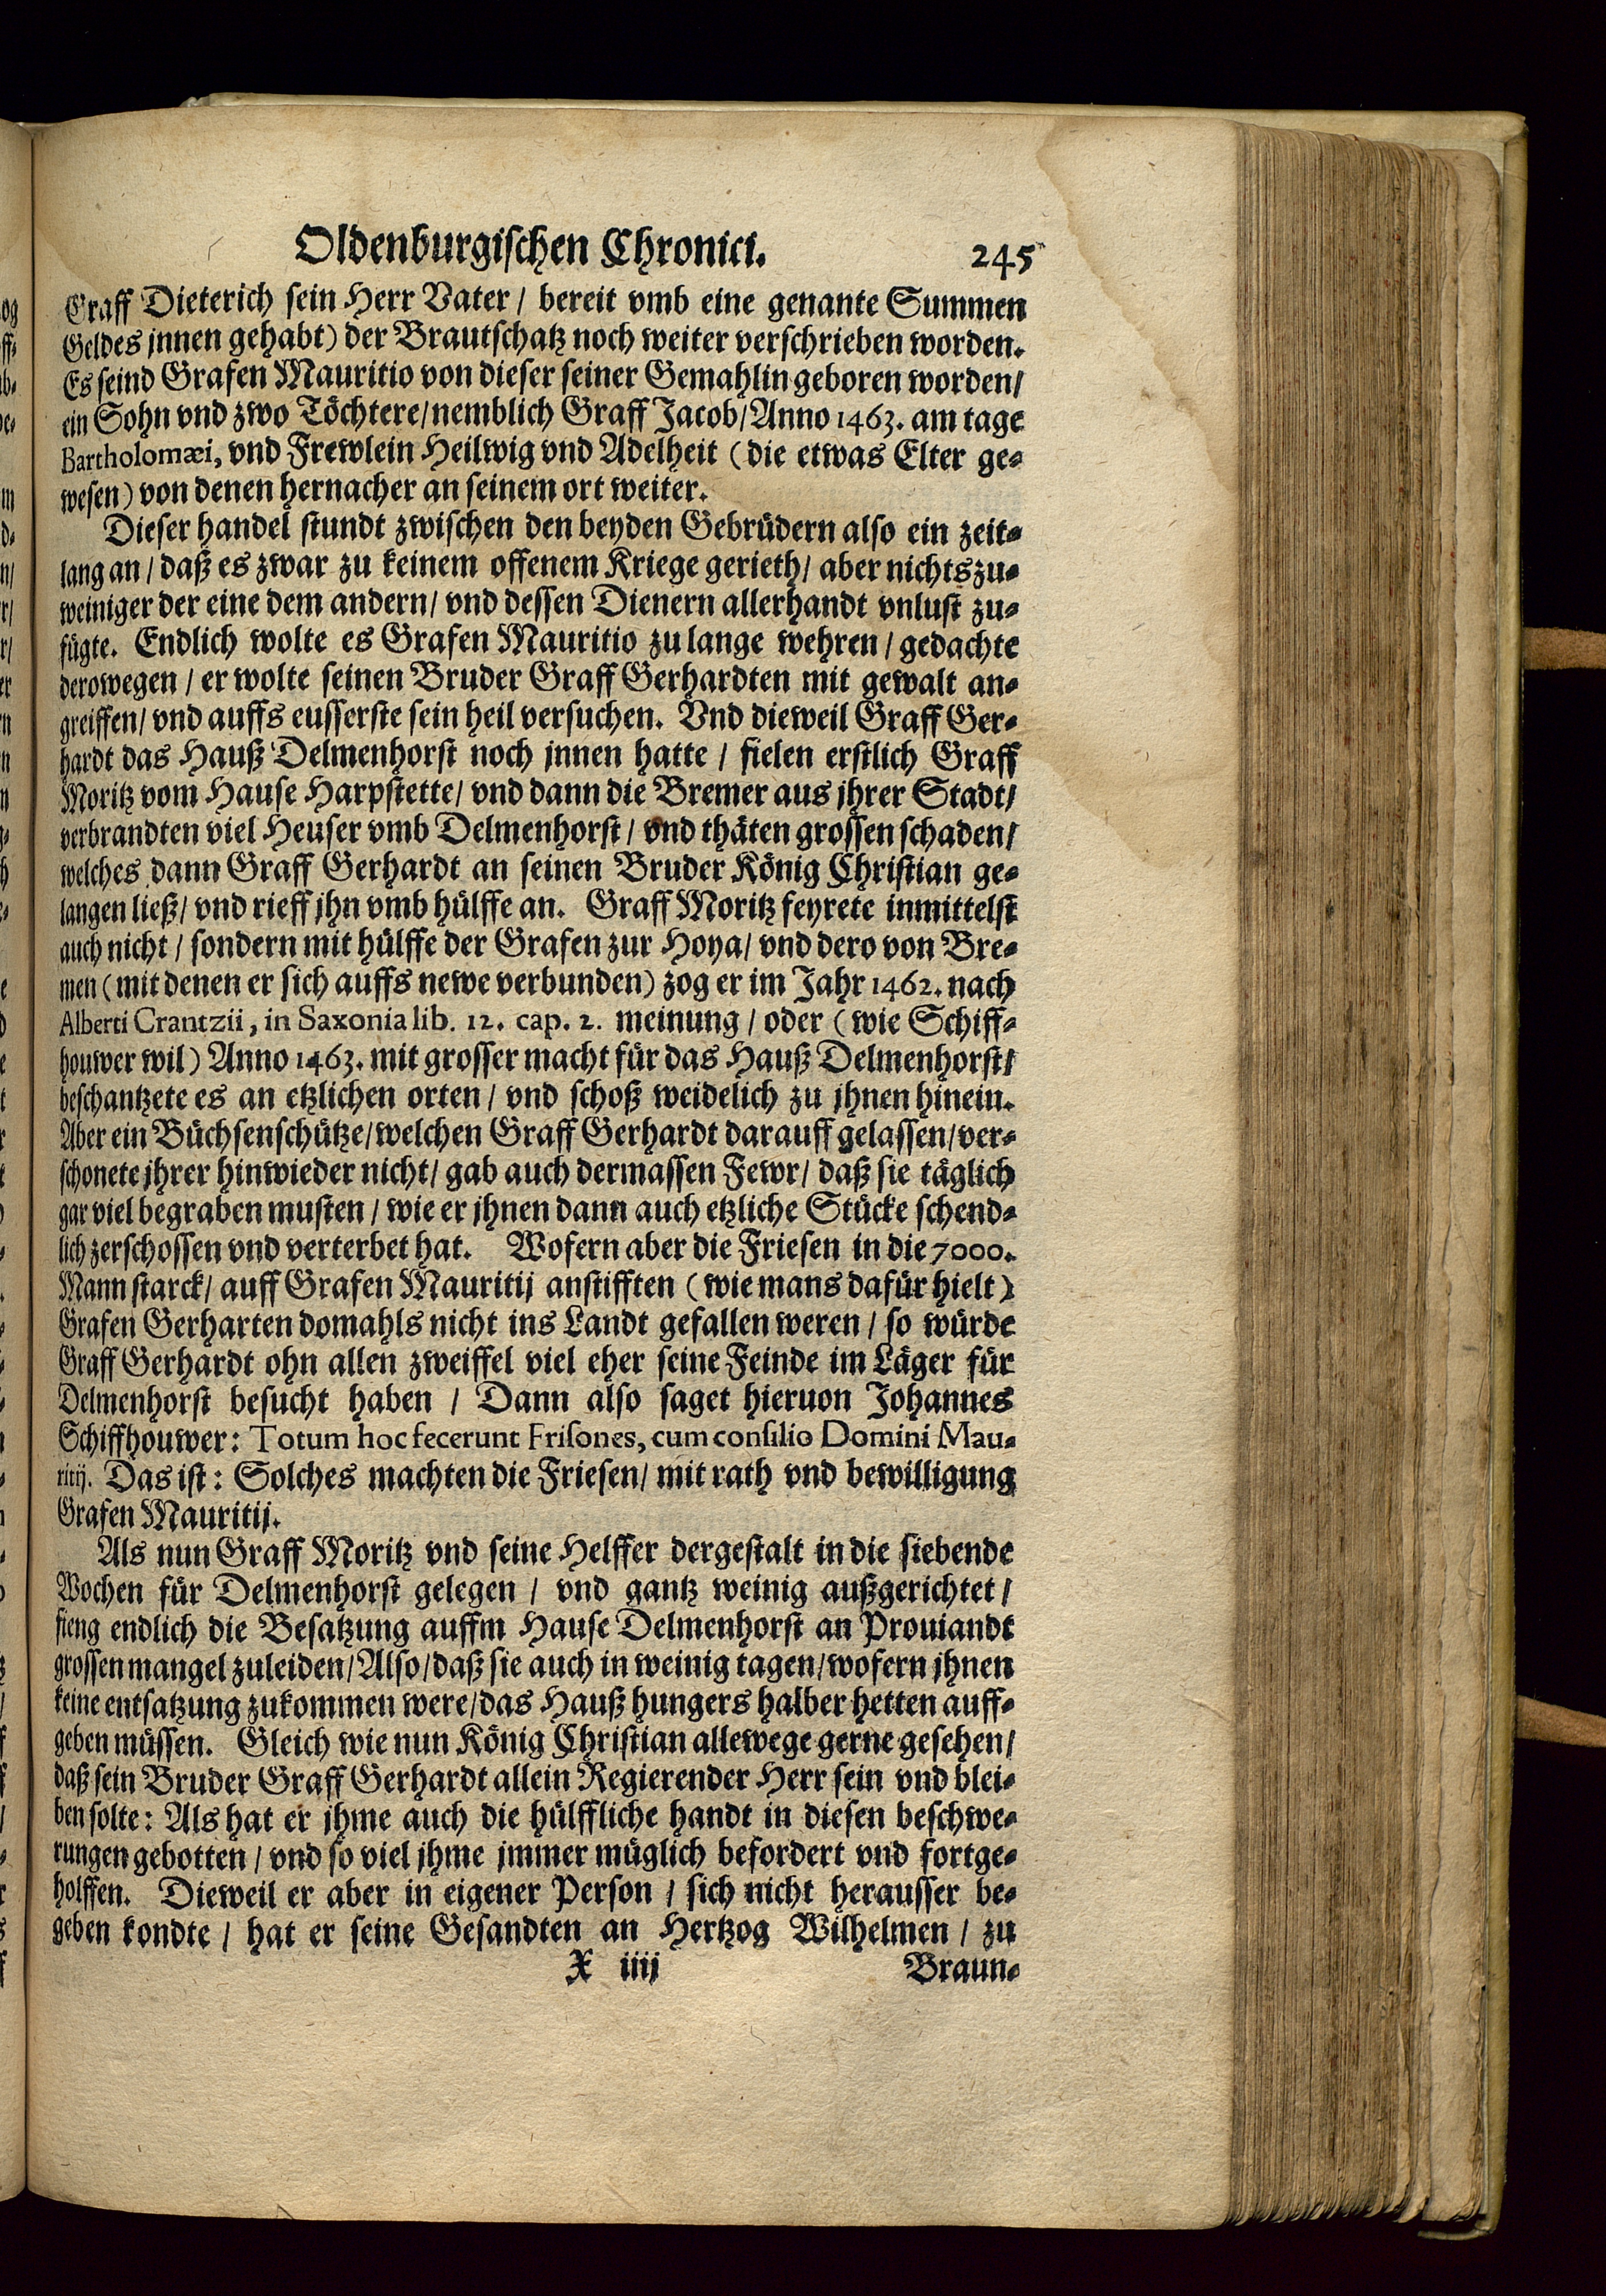 Oldenburgischen Chronici. 245
Graff Dieterich sein Herr Vater / bereit vmb eine genante Summen
Geldes jnnen gehabt) der Brautschatz noch weiter verschrieben worden.
Es seind Grafen Mauritio von dieser seiner Gemahlin geboren worden /
ein Sohn vnd zwo Töchtere / nemblich Graff Jacob / Anno 1463. am tage
Bartholomæi, vnd Frewlein Heilwig vnd Adelheit (die etwas Elter ge-
wesen) von denen hernacher an seinem ort weiter.
Dieser handel stundt zwischen den beyden Gebrüdern also ein zeit-
lang an / daß es zwar zu keinem offenem Kriege gerieth / aber nichts zu-
weiniger der eine dem andern / vnd dessen Dienern allerhandt vnlust zu-
fügte. Endlich wolte es Grafen Mauritio zu lange wehren / gedachte
derowegen / er wolte seinen Bruder Graff Gerhardten mit gewalt an-
greiffen / vnd auffs eusserste sein heil versuchen. Vnd dieweil Graff Ger-
hardt das Hauß Delmenhorst noch jnnen hatte / fielen erstlich Graff
Moritz vom Hause Harpstette / vnd dann die Bremer aus jhrer Stadt /
verbrandten viel Heuser vmb Delmenhorst / vnd thäten grossen schaden /
welches dann Graff Gerhardt an seinen Bruder König Christian ge-
langen ließ / vnd rieff jhn vmb hülffe an. Graff Moritz feyrete inmittelst
auch nicht / sondern mit hülffe der Grafen zur Hoya / vnd dero von Bre-
men (mit denen er sich auffs newe verbunden) zog er im Jahr 1462. nach
Alberti Crantzii, in Saxonia lib. 12. cap. 2. meinung / oder (wie Schiff-
houwer wil) Anno 1463. mit grosser macht für das Hauß Delmenhorst /
beschantzete es an etzlichen orten / vnd schoß weidelich zu jhnen hinein.
Aber ein Büchsenschütze / welchen Graff Gerhardt darauff gelassen / ver-
schonete jhrer hinwieder nicht / gab auch dermassen Fewr / daß sie täglich
gar viel begraben musten / wie er jhnen dann auch etzliche Stücke schend-
lich zerschossen vnd verterbet hat. Wofern aber die Friesen in die 7000.
Mann starck / auff Grafen Mauritij anstifften (wie mans dafür hielt)
Grafen Gerharten domahls nicht ins Landt gefallen weren / so würde
Graff Gerhardt ohn allen zweiffel viel eher seine Feinde im Läger für
Delmenhorst besucht haben / Dann also saget hieruon Johannes
Schiffhouwer: Totum hoc fecerunt Frisones, cum consilio Domini Mau-
ritij. Das ist: Solches machten die Friesen / mit rath vnd bewilligung
Grafen Mauritij.
Als nun Graff Moritz vnd seine Helffer dergestalt in die siebende
Wochen für Delmenhorst gelegen / vnd gantz weinig außgerichtet /
fieng endlich die Besatzung auffm Hause Delmenhorst an Prouiandt
grossen mangel zuleiden / Also / daß sie auch in weinig tagen / wofern jhnen
keine entsatzung zukommen were / das Hauß hungers halber hetten auff-
geben müssen. Gleich wie nun König Christian allewege gerne gesehen /
daß sein Bruder Graff Gerhardt allein Regierender Herr sein vnd blei-
ben solte: Als hat er jhme auch die hülffliche handt in diesen beschwe-
rungen gebotten / vnd so viel jhme jmmer müglich befordert vnd fortge-
holffen. Dieweil er aber in eigener Person / sich nicht herausser be-
geben kondte / hat er seine Gesandten an Hertzog Wilhelmen / zu
X iiij Braun-